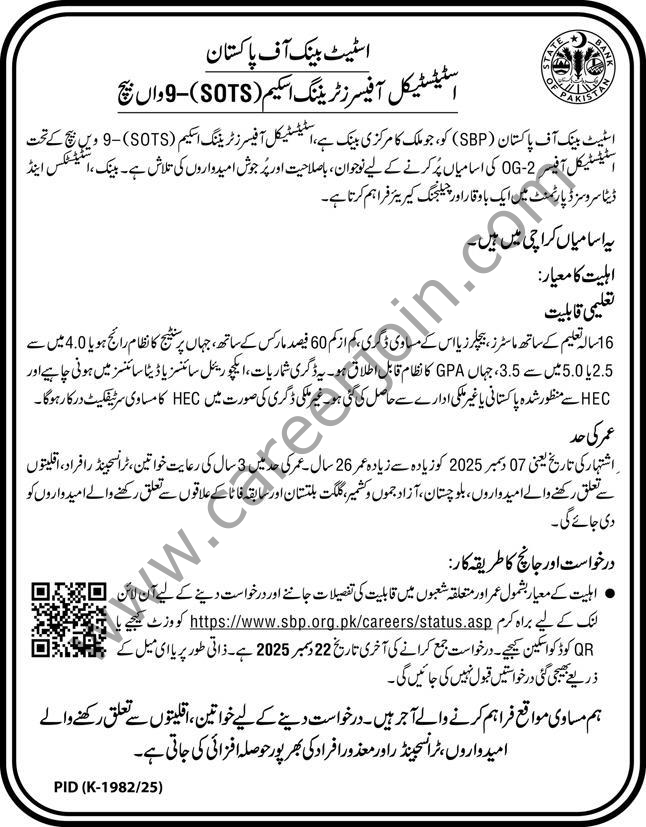 اسٹیٹ بینک آف پاکستان
اسٹیٹسٹیکل آفیسرز ٹریننگ اسکیم (SOTS)–9 واں بیچ
STATE BANK OF PAKISTAN
اسٹیٹ بینک آف پاکستان (SBP) کو، جو ملک کا مرکزی بینک ہے، اسٹیٹسٹیکل آفیسرز ٹریننگ اسکیم (SOTS)–9 ویں بیچ کے تحت
اسٹیٹسٹیکل آفیسر OG-2 کی اسامیاں پُر کرنے کے لیے نوجوان، باصلاحیت اور پُرجوش امیدواروں کی تلاش ہے۔ بینک، اسٹیٹسٹکس اینڈ
ڈیٹا سروسز ڈپارٹمنٹ میں ایک باوقار اور چیلنجنگ کیریئر فراہم کرتا ہے۔
یہ اسامیاں کراچی میں ہیں۔
اہلیت کا معیار:
تعلیمی قابلیت
16 سالہ تعلیم کے ساتھ ماسٹرز، بیچلرز یا اس کے مساوی ڈگری، کم از کم 60 فیصد مارکس کے ساتھ، جہاں پرسنٹیج کا نظام رائج ہو یا 4.0 میں سے
2.5 یا 5.0 میں سے 3.5، جہاں GPA کا نظام قابل اطلاق ہو۔ یہ ڈگری شماریات، ایکچوریئل سائنسز یا ڈیٹا سائنسز میں ہونی چاہیے اور
HEC سے منظور شدہ پاکستانی یا غیر ملکی ادارے سے حاصل کی گئی ہو۔ غیر ملکی ڈگری کی صورت میں HEC کا مساوی سرٹیفکیٹ درکار ہوگا۔
عمر کی حد
اشتہار کی تاریخ یعنی 07 دسمبر 2025 کو زیادہ سے زیادہ عمر 26 سال۔ عمر کی حد میں 3 سال کی رعایت خواتین، ٹرانسجینڈر افراد، اقلیتوں
سے تعلق رکھنے والے امیدواروں، بلوچستان، آزاد جموں و کشمیر، گلگت بلتستان اور سابقہ فاٹا کے علاقوں سے تعلق رکھنے والے امیدواروں کو
دی جائے گی۔
درخواست اور جانچ کا طریقہ کار:
● اہلیت کے معیار بشمول عمر اور متعلقہ شعبوں میں قابلیت کی تفصیلات جاننے اور درخواست دینے کے لیے آن لائن
لنک کے لیے براہ کرم https://www.sbp.org.pk/careers/status.asp کو وزٹ کیجیے یا
QR کوڈ کو اسکین کیجیے۔ درخواست جمع کرانے کی آخری تاریخ 22 دسمبر 2025 ہے۔ ذاتی طور پر یا ای میل کے
ذریعے بھیجی گئی درخواستیں قبول نہیں کی جائیں گی۔
ہم مساوی مواقع فراہم کرنے والے آجر ہیں۔ درخواست دینے کے لیے خواتین، اقلیتوں سے تعلق رکھنے والے
امیدواروں، ٹرانسجینڈر اور معذور افراد کی بھرپور حوصلہ افزائی کی جاتی ہے۔
PID (K-1982/25)
www.careerjoin.com